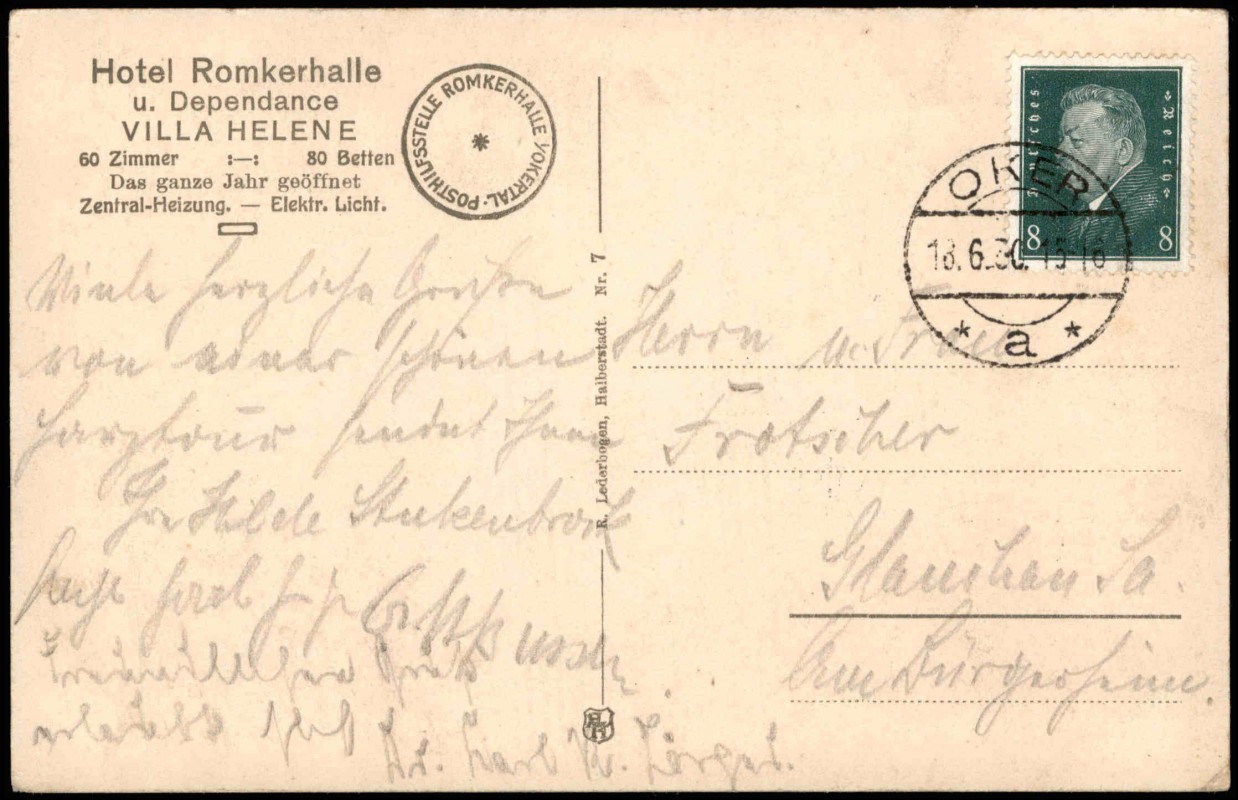 Hotel Romkerhalle
u. Dependance
VILLA HELENE
60 Zimmer :—: 80 Betten
Das ganze Jahr geöffnet
Zentral-Heizung. — Elektr. Licht.
POSTHILFSSTELLE ROMKERHALLE \/OKERTAL
Deutsches Reich
8 8
OKER
18.6.30. 15-16
* a *
Viele herzliche Grüße
von einer schönen
Harztour sendet Ihnen
Ihre Hilde Stukenbrock
R. Lederbogen, Halberstadt. Nr. 7
Herrn u. Frau
Frotscher
Glauchau Sa.
Am Bürgerheim.
erlaubt sich
Dr. Karl